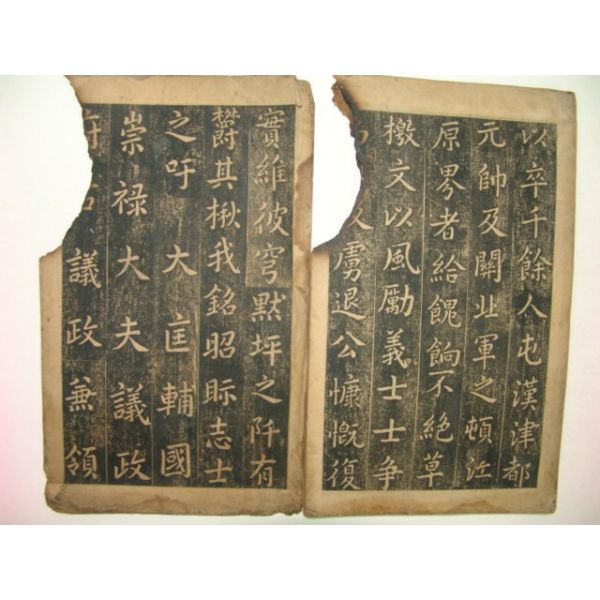 以卒千餘人屯漢津都
元帥及關北軍之頓江
原界者給餽餉不絕草
檄文以風勵義士士爭
以虜退公慷慨復
實維彼穹默坪之阡有
欝其楸我銘昭眎志士
之吁 大匡輔國
崇祿大夫議政
府右議政兼領